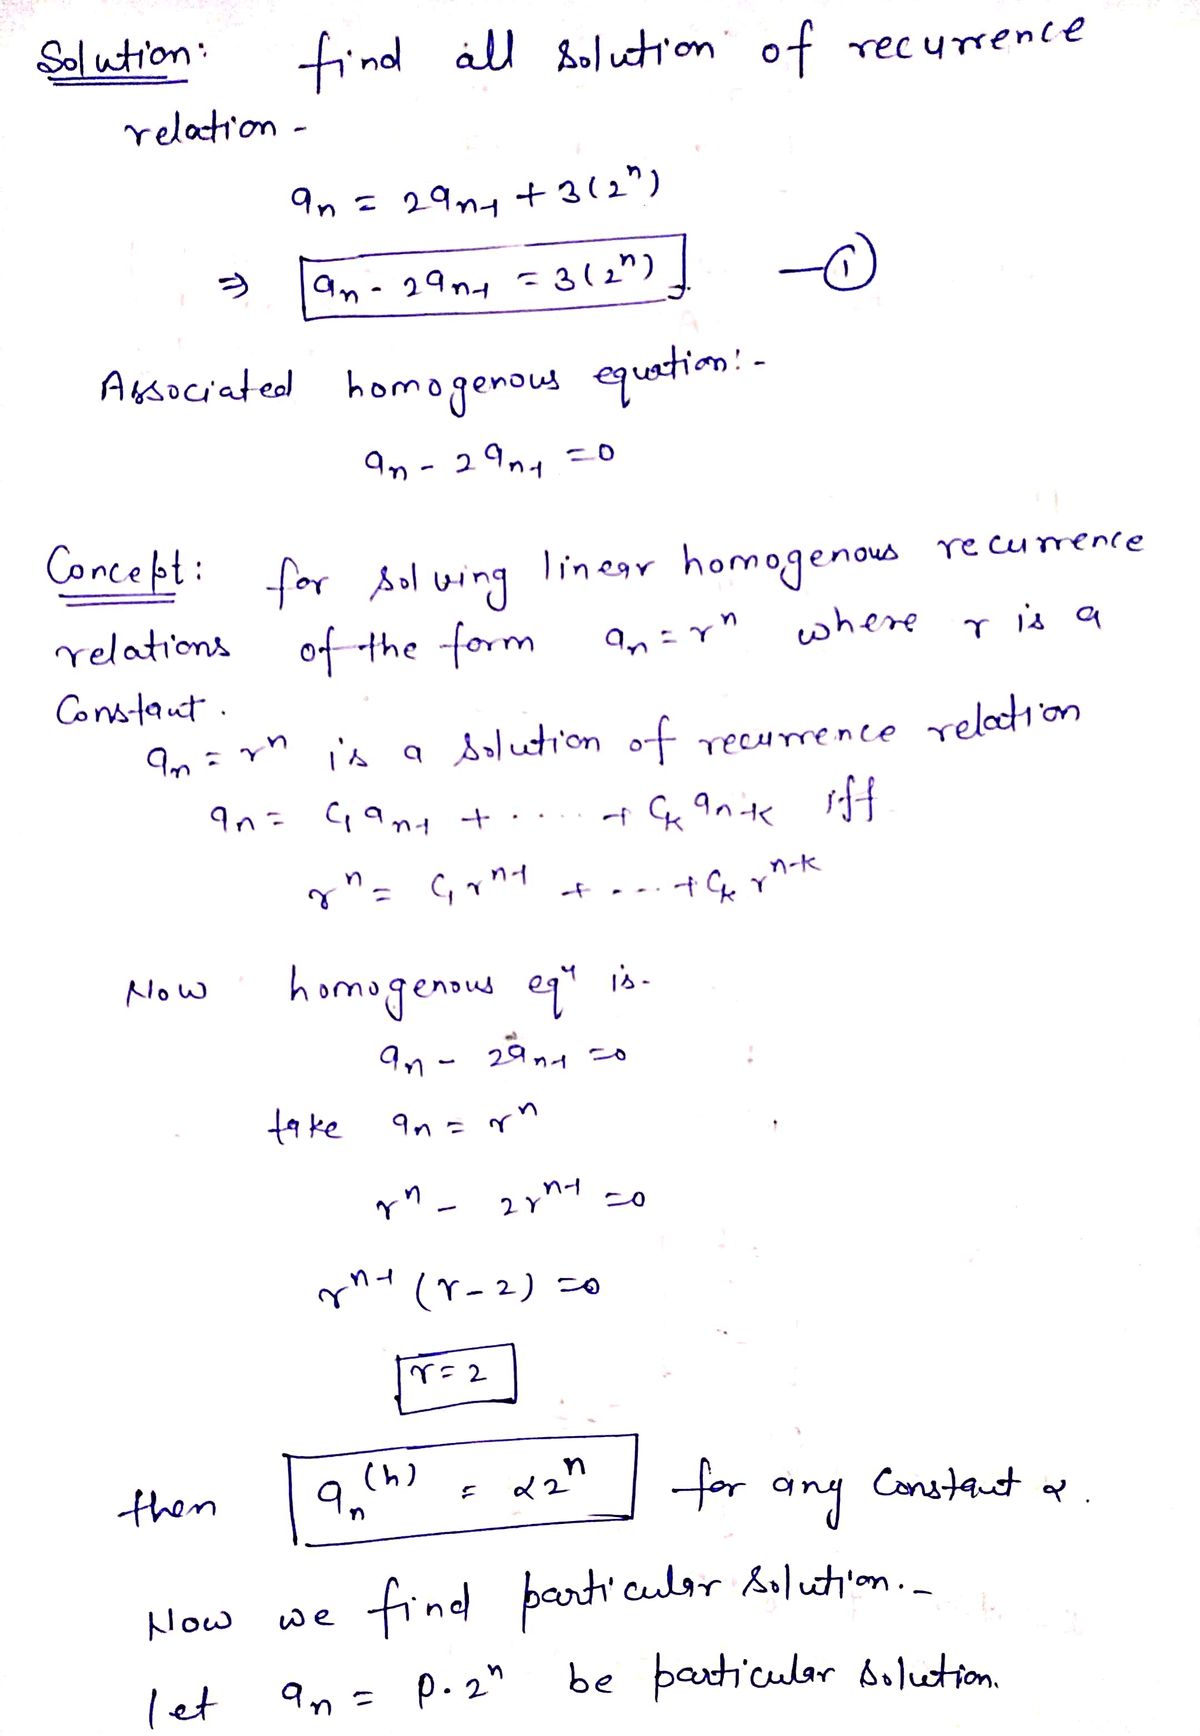 Solution: find all solution of recurrence
relation -
aₙ = 2aₙ₋₁ + 3(2ⁿ)
⇒ aₙ - 2aₙ₋₁ = 3(2ⁿ) —①
Associated homogenous equation:-
aₙ - 2aₙ₋₁ = 0
Concept: for solving linear homogenous recurrence
relations of the form aₙ = rⁿ where r is a
Constant.
aₙ = rⁿ is a solution of recurrence relation
aₙ = C₁aₙ₋₁ + ..... + Cₖaₙ₋ₖ iff
rⁿ = C₁rⁿ⁻¹ + ....+ Cₖ rⁿ⁻ᵏ
Now homogenous eqⁿ is-
aₙ - 2aₙ₋₁ = 0
take aₙ = rⁿ
rⁿ - 2rⁿ⁻¹ = 0
rⁿ⁻¹ (r-2) = 0
r = 2
then aₙ⁽ʰ⁾ = α2ⁿ for any Constant α.
Now we find particular solution.-
let aₙ = p.2ⁿ be particular solution.